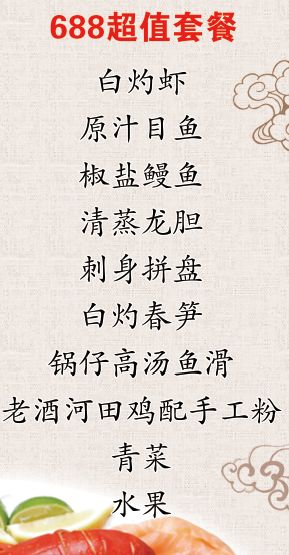 688超值套餐
白灼虾
原汁目鱼
椒盐鳗鱼
清蒸龙胆
刺身拼盘
白灼春笋
锅仔高汤鱼滑
老酒河田鸡配手工粉
青菜
水果